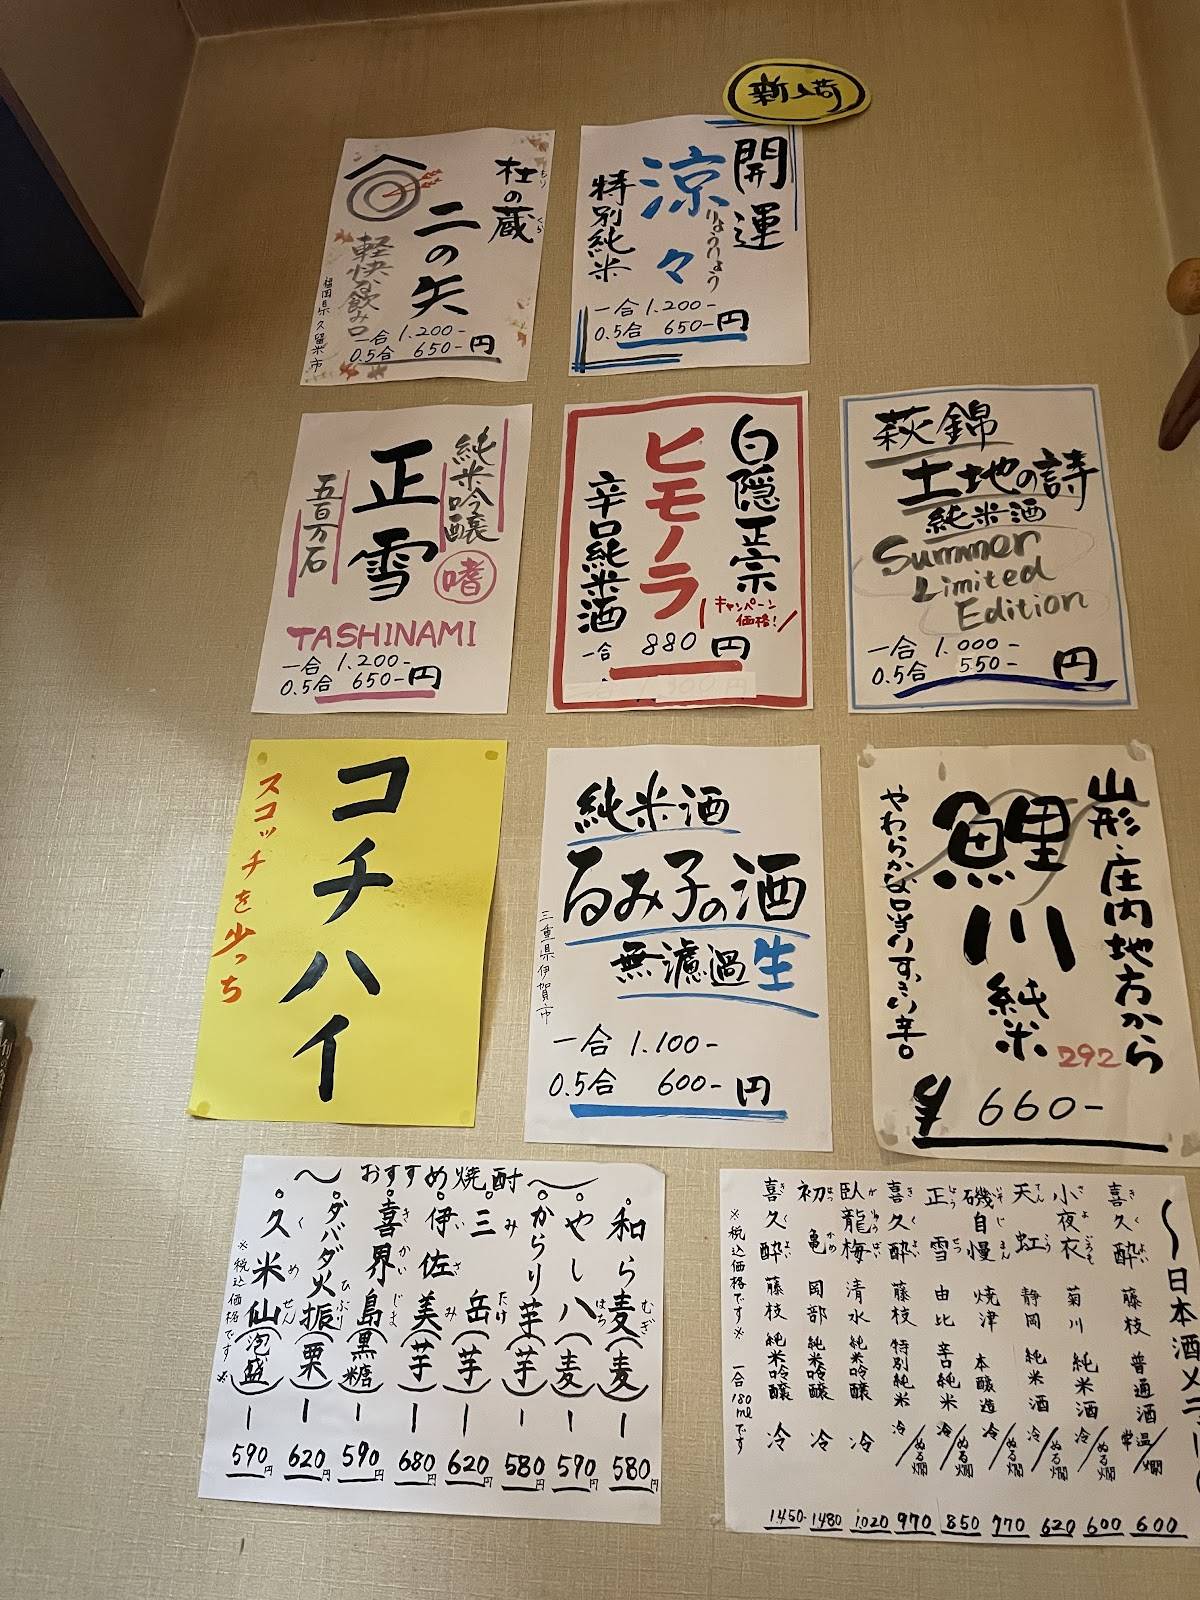 新入荷
杜の蔵
もり
くら
二の矢
軽快な飲み口
福岡県久留米市
一合 1.200-
0.5合 650-円
開運
涼々
りょうりょう
特別純米
一合 1.200-
0.5合 650-円
純米吟醸
嗜
正雪
五百万石
TASHINAMI
一合 1.200-
0.5合 650-円
白隠正宗
ヒモノラ
辛口純米酒
キャンペーン
価格!
一合 880円
萩錦
土地の詩
純米酒
Summer
Limited
Edition
一合 1.000-
0.5合 550-円
コチハイ
スコッチを少っち
純米酒
るみ子の酒
無濾過生
三重県伊賀市
一合 1.100-
0.5合 600-円
山形・庄内地方から
鯉川
純米
292
やわらかな口当りすっきり辛口
¥660-
〜おすすめ焼酎〜
和ら麦(麦)-580円
むぎ
やしハ(麦)-570円
はち
からり芋(芋)-580円
三岳(芋)-620円
みたけ
伊佐美(芋)-680円
いさみ
喜界島(黒糖)-590円
きかいじま
ダバダ火振(栗)-620円
ひぶり
久米仙(泡盛)-590円
くめせん
※税込価格です※
〜日本酒メニュー
喜久酔 藤枝 普通酒 常温/燗 600
きくよい
小夜衣 菊川 純米酒 冷/ぬる燗 600
さよごろも
天虹 静岡 純米酒 冷/ぬる燗 620
てんこう
磯自慢 焼津 本醸造 冷/ぬる燗 770
いそじまん
正雪 由比 辛口純米 冷/ぬる燗 850
しょうせつ
喜久酔 藤枝 特別純米 冷/ぬる燗 970
きくよい
臥龍梅 清水 純米吟醸 冷 1.020
がりゅうばい
初亀 岡部 純米吟醸 冷 1480
はつかめ
喜久酔 藤枝 純米吟醸 冷 1.450-
きくよい
※税込価格です※ 一合180mlです